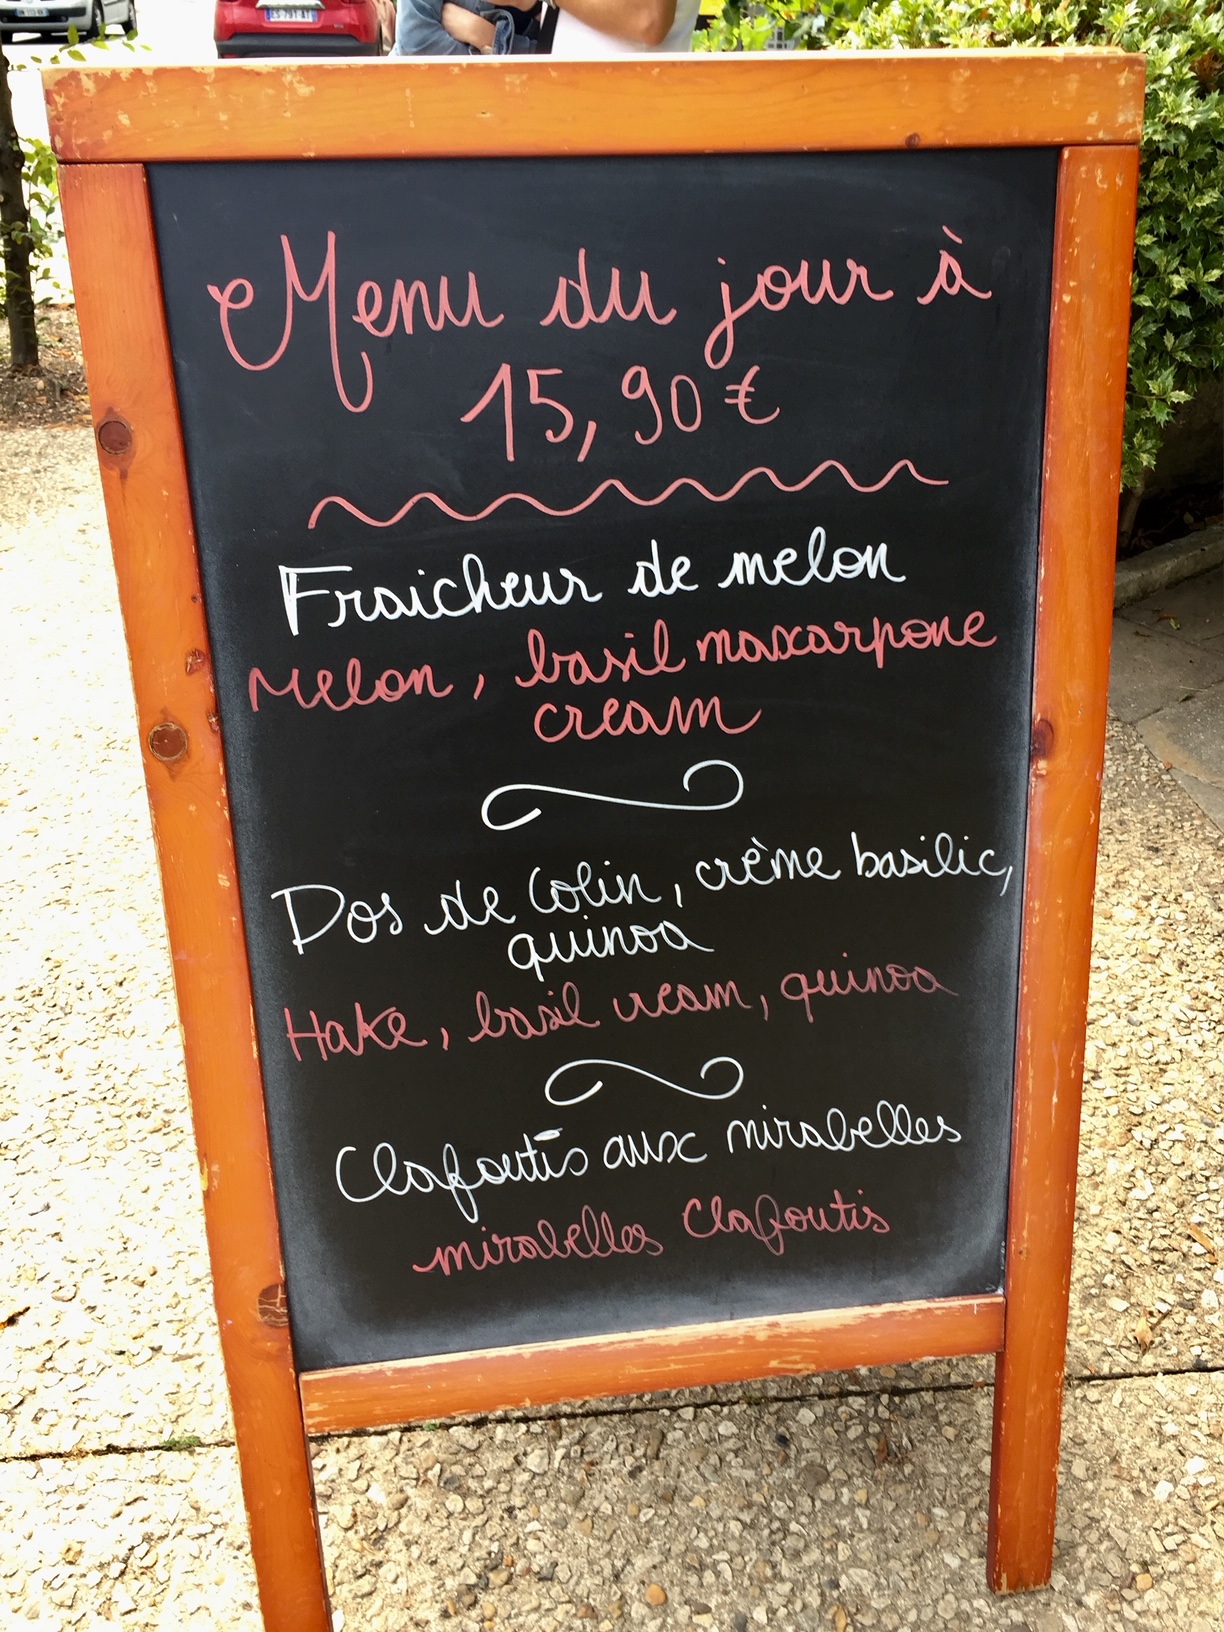 Menu du jour à
15,90 €
Fraicheur de melon
Melon, basil mascarpone
cream
Dos de Colin, crème basilic,
quinoa
Hake, basil cream, quinoa
Clafoutis aux mirabelles
mirabelles Clafoutis